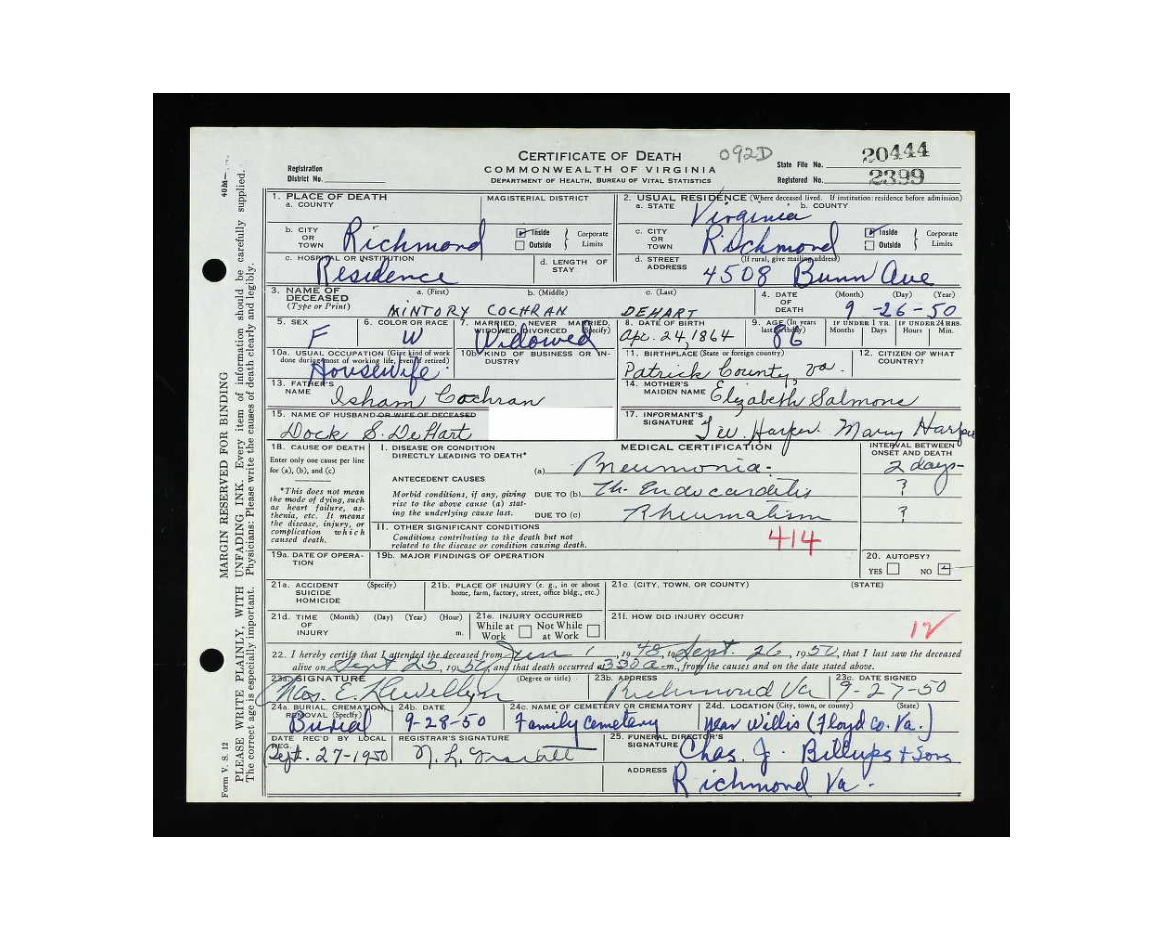 CERTIFICATE OF DEATH
COMMONWEALTH OF VIRGINIA
DEPARTMENT OF HEALTH, BUREAU OF VITAL STATISTICS
092D
Registration District No.
State File No. 20444
Registered No. 2399
1. PLACE OF DEATH
a. COUNTY
MAGISTERIAL DISTRICT
2. USUAL RESIDENCE (Where deceased lived. If institution: residence before admission)
a. STATE Virginia b. COUNTY
b. CITY OR TOWN Richmond Inside Outside Corporate Limits
c. CITY OR TOWN Richmond Inside Outside Corporate Limits
c. HOSPITAL OR INSTITUTION Residence
d. LENGTH OF STAY
d. STREET ADDRESS (If rural, give mailing address) 4508 Bunn Ave
3. NAME OF DECEASED (Type or Print) a. (First) b. (Middle) c. (Last)
MINTORY COCHRAN DEHART
4. DATE OF DEATH (Month) (Day) (Year) 9-26-50
5. SEX F
6. COLOR OR RACE W
7. MARRIED, NEVER MARRIED, WIDOWED, DIVORCED (Specify) Widowed
8. DATE OF BIRTH Apr. 24, 1864
9. AGE (In years last birthday) 86
IF UNDER 1 YR. Months Days
IF UNDER 24 HRS. Hours Min.
10a. USUAL OCCUPATION (Give kind of work done during most of working life, even if retired) Housewife
10b. KIND OF BUSINESS OR INDUSTRY
11. BIRTHPLACE (State or foreign country) Patrick County, Va.
12. CITIZEN OF WHAT COUNTRY?
13. FATHER'S NAME Isham Cochran
14. MOTHER'S MAIDEN NAME Elizabeth Salmons
15. NAME OF HUSBAND OR WIFE OF DECEASED Dock S. DeHart
17. INFORMANT'S SIGNATURE Harper Mary Harper
18. CAUSE OF DEATH
Enter only one cause per line for (a), (b), and (c)
*This does not mean the mode of dying, such as heart failure, asthenia, etc. It means the disease, injury, or complication which caused death.
MEDICAL CERTIFICATION
INTERVAL BETWEEN ONSET AND DEATH
I. DISEASE OR CONDITION DIRECTLY LEADING TO DEATH* (a) Pneumonia 2 days
ANTECEDENT CAUSES
Morbid conditions, if any, giving rise to the above cause (a) stating the underlying cause last.
DUE TO (b) Ch. Endocarditis ?
DUE TO (c) Rheumatism ?
II. OTHER SIGNIFICANT CONDITIONS
Conditions contributing to the death but not related to the disease or condition causing death.
414
19a. DATE OF OPERATION
19b. MAJOR FINDINGS OF OPERATION
20. AUTOPSY? YES NO
21a. ACCIDENT SUICIDE HOMICIDE (Specify)
21b. PLACE OF INJURY (e. g., in or about home, farm, factory, street, office bldg., etc.)
21c. (CITY, TOWN, OR COUNTY) (STATE)
21d. TIME OF INJURY (Month) (Day) (Year) (Hour) m.
21e. INJURY OCCURRED While at Work Not While at Work
21f. HOW DID INJURY OCCUR?
22. I hereby certify that I attended the deceased from Jun 1, 1948, to Sept. 26, 1950, that I last saw the deceased
alive on Sept 25, 1950, and that death occurred at 3:30 a. m., from the causes and on the date stated above.
23a. SIGNATURE (Degree or title) E. Llewellyn
23b. ADDRESS Richmond Va
23c. DATE SIGNED 9-27-50
24a. BURIAL, CREMATION, REMOVAL (Specify) Burial
24b. DATE 9-28-50
24c. NAME OF CEMETERY OR CREMATORY Family Cemetery
24d. LOCATION (City, town, or county) (State) near Willis (Floyd Co. Va.)
DATE REC'D BY LOCAL REG. Sept. 27-1950
REGISTRAR'S SIGNATURE
25. FUNERAL DIRECTOR'S SIGNATURE Chas. J. Billups & Sons
ADDRESS Richmond Va.
Form V. S. 12
MARGIN RESERVED FOR BINDING
PLEASE WRITE PLAINLY, WITH UNFADING INK. Every item of information should be carefully supplied.
The correct age is especially important. Physicians: Please write the causes of death clearly and legibly.